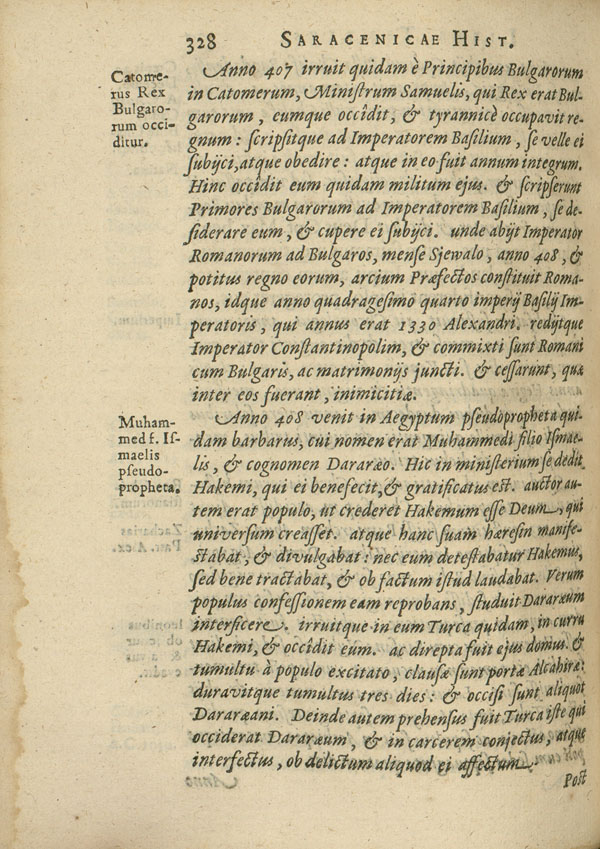 328 SARACENICAE HIST.
Catome-
rus Rex
Bulgaro-
rum occi-
ditur.
Anno 407 irruit quidam è Principibus Bulgarorum
in Catomerum, Miniſtrum Samuelis, qui Rex erat Bul-
garorum, eumque occîdit, & tyrannicè occupavit re-
gnum: ſcripſitque ad Imperatorem Baſilium, ſe velle ei
ſubijci, atque obedire: atque in eo fuit annum integrum.
Hinc occîdit eum quidam militum ejus. & ſcripſerunt
Primores Bulgarorum ad Imperatorem Baſilium, ſe de-
ſiderare eum, & cupere ei ſubijci. unde abijt Imperator
Romanorum ad Bulgaros, menſe Sjewalo, anno 408, &
potitus regno eorum, arcium Præfectos conſtituit Roma-
nos, idque anno quadrageſimo quarto imperij Baſilij Im-
peratoris, qui annus erat 1330 Alexandri. redijtque
Imperator Conſtantinopolim, & commixti ſunt Romani
cum Bulgaris, ac matrimonijs juncti. & ceſſarunt, quæ
inter eos fuerant, inimicitiæ.
Muham-
med f. Iſ-
maelis
pſeudo-
propheta.
Anno 408 venit in Aegyptum pſeudopropheta qui-
dam barbarus, cui nomen erat Muhammedi filio Iſmae-
lis, & cognomen Dararæo. Hic in miniſterium ſe dedit
Hakemi, qui ei benefecit, & gratificatus eſt. auctor au-
tem erat populo, ut crederet Hakemum eſſe Deum, qui
univerſum creaſſet. atque hanc ſuam hæreſin manife-
ſtabat, & divulgabat: nec eum deteſtabatur Hakemus,
ſed bene tractabat, & ob factum iſtud laudabat. Verum
populus confeſſionem eam reprobans, ſtuduit Dararæum
interficere. irruitque in eum Turca quidam, in curru
Hakemi, & occîdit eum. ac direpta fuit ejus domus. &
tumultu à populo excitato, clauſæ ſunt portæ Alcahiræ:
duravitque tumultus tres dies: & occiſi ſunt aliquot
Dararæani. Deinde autem prehenſus fuit Turca iſte qui
occiderat Dararæum, & in carcerem conjectus, atque
interfectus, ob delictum aliquod ei affectum.
Poſt